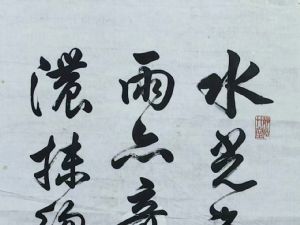 水光
雨亦奇
濃抹